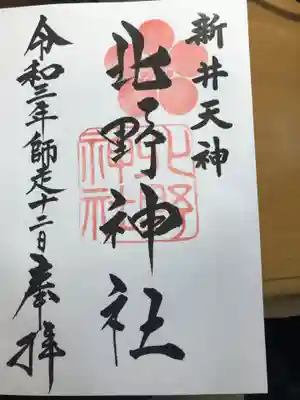 新井天神
北野神社
北野
神社
令和三年師走十二日奉拝